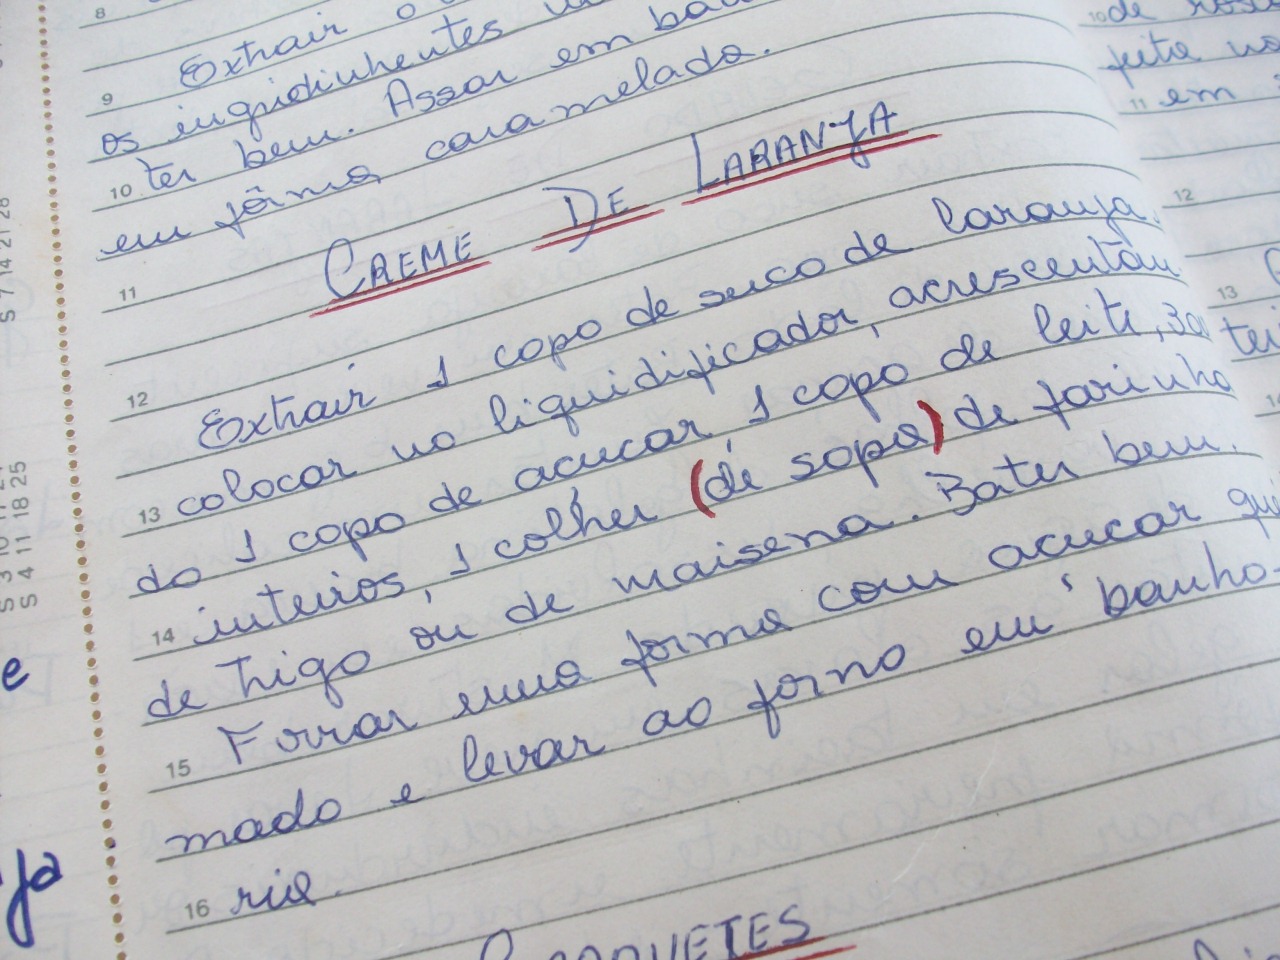 8
Extrair o
9
os ingridinhentes
10 ter bem. Assar em ban
em fôrma caramelada.
11
CREME DE LARANJA
12
Extrair 1 copo de suco de laranja.
13 colocar no liquidificador, acrescentan
do 1 copo de acucar, 1 copo de leite, 3
14 inteiros, 1 colher (de sopa) de farinha
de trigo ou de maisena. Bater bem.
15 Forrar uma forma com acucar quei
mado e levar ao forno em banho-
16 ria.
CROQUETES
S 7 14 21 28
S 3 10 17
S 4 11 18 25
e
ja
10 de
feita
11 em
12
13
tei
14